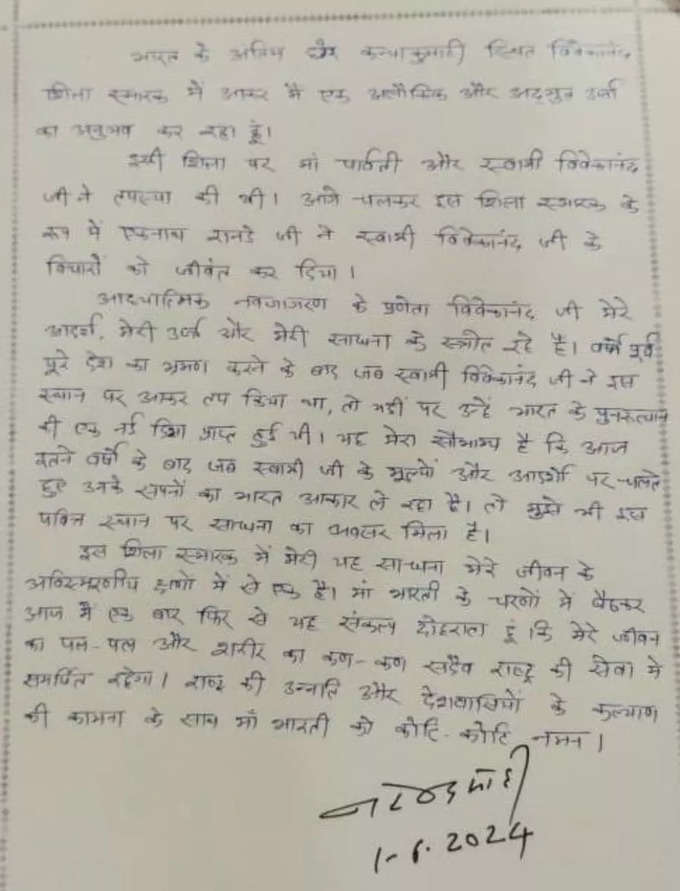 भारत के अंतिम छोर कन्याकुमारी स्थित विवेकानंद
शिला स्मारक में आकर मैं एक अलौकिक और अद्भुत ऊर्जा
का अनुभव कर रहा हूं।
इसी शिला पर मां पार्वती और स्वामी विवेकानंद
जी ने तपस्या की थी। आगे चलकर इस शिला स्मारक के
रूप में एकनाथ रानडे जी ने स्वामी विवेकानंद जी के
विचारों को जीवंत कर दिया।
आध्यात्मिक नवजागरण के प्रणेता विवेकानंद जी मेरे
आदर्श, मेरी ऊर्जा और मेरी साधना के स्त्रोत रहे है। वर्षों पूर्व
पूरे देश का भ्रमण करने के बाद जब स्वामी विवेकानंद जी ने इस
स्थान पर आकर तप किया था, तो यहीं पर उन्हें भारत के पुनरुत्थान
की एक नई दिशा प्राप्त हुई थी। यह मेरा सौभाग्य है कि आज
इतने वर्षों के बाद जब स्वामी जी के मूल्यों और आदर्शों पर चलते
हुए उनके सपनों का भारत आकार ले रहा है। तो मुझे भी इस
पवित्र स्थान पर साधना का अवसर मिला है।
इस शिला स्मारक में मेरी यह साधना मेरे जीवन के
अविस्मरणीय क्षणों में से एक है। मां भारती के चरणों में बैठकर
आज मैं एक बार फिर से यह संकल्प दोहराता हूं कि मेरे जीवन
का पल-पल और शरीर का कण-कण सदैव राष्ट्र की सेवा में
समर्पित रहेगा। राष्ट्र की उन्नति और देशवासियों के कल्याण
की कामना के साथ माँ भारती को कोटि-कोटि नमन।
नरेन्द्र मोदी
1-6.2024